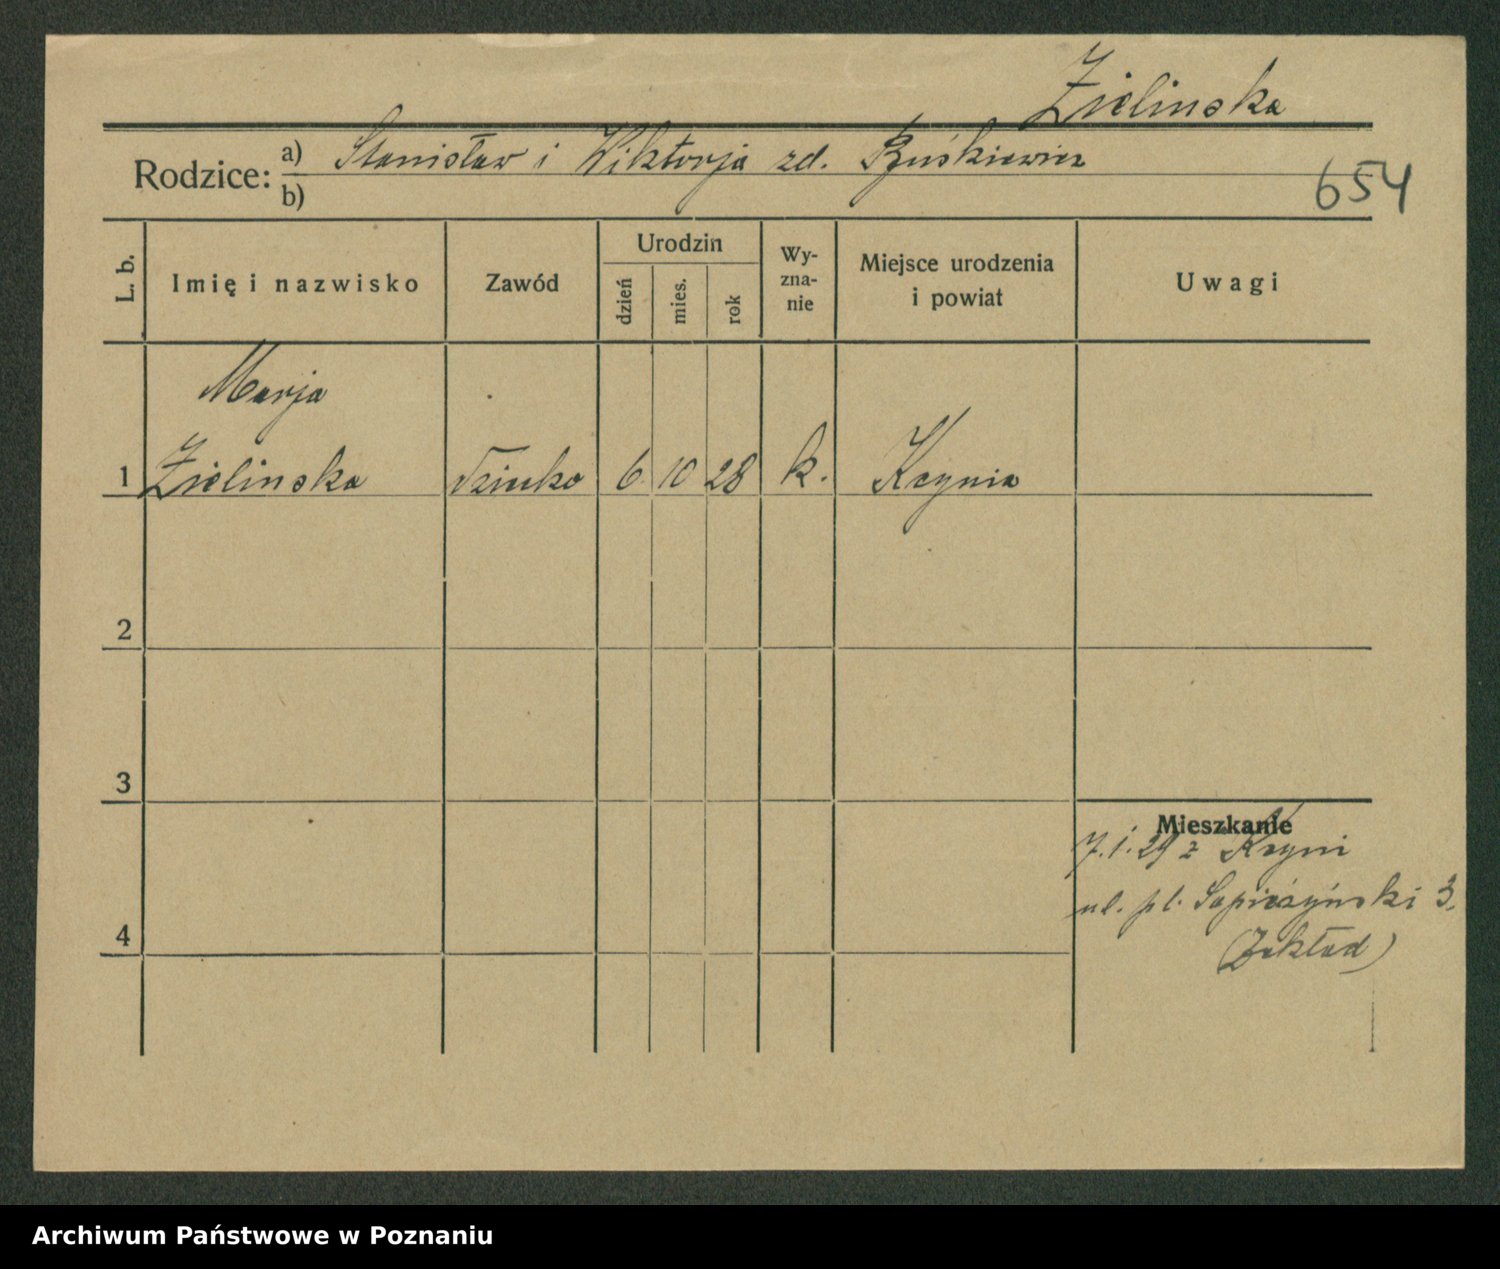 Zielinska
Rodzice: a) Stanisław i Wiktorja zd.
b)
654
L. b.
Imię i nazwisko
Zawód
Urodzin
dzień
mies.
rok
Wy-
zna-
nie
Miejsce urodzenia
i powiat
Uwagi
Marja
1 Zielinska dziecko 6 10 28 k. Kcynia
2
3
4
Mieszkanie
7.1.29 z Kcyni
ul. pl. Sapieżyński 3.
(Zakład)
Archiwum Państwowe w Poznaniu